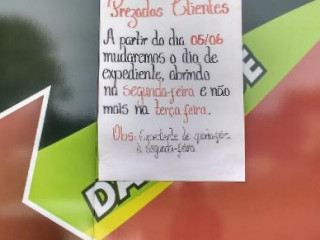 Prezados Clientes
A partir do dia 05/06
mudaremos o dia de
expediente, abrindo
na segunda-feira e não
mais na terça-feira.
Obs: Expediente de quarta-feira
à segunda-feira
DA
E